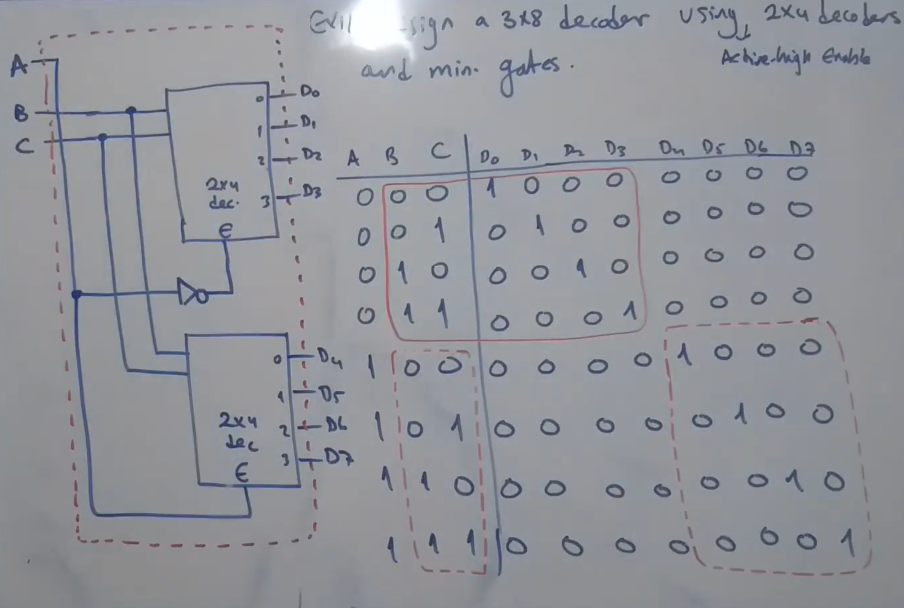 a 3x8 decoder using 2x4 decoders
Active-high Enable
and min. gates.
A
B
C
0 D0
1 D1
2 D2
3 D3
2x4
dec.
E
0 D4
1 D5
2 D6
3 D7
2x4
dec
E
A B C D0 D1 D2 D3 D4 D5 D6 D7
0 0 0 1 0 0 0 0 0 0 0
0 0 1 0 1 0 0 0 0 0 0
0 1 0 0 0 1 0 0 0 0 0
0 1 1 0 0 0 1 0 0 0 0
1 0 0 0 0 0 0 1 0 0 0
1 0 1 0 0 0 0 0 1 0 0
1 1 0 0 0 0 0 0 0 1 0
1 1 1 0 0 0 0 0 0 0 1